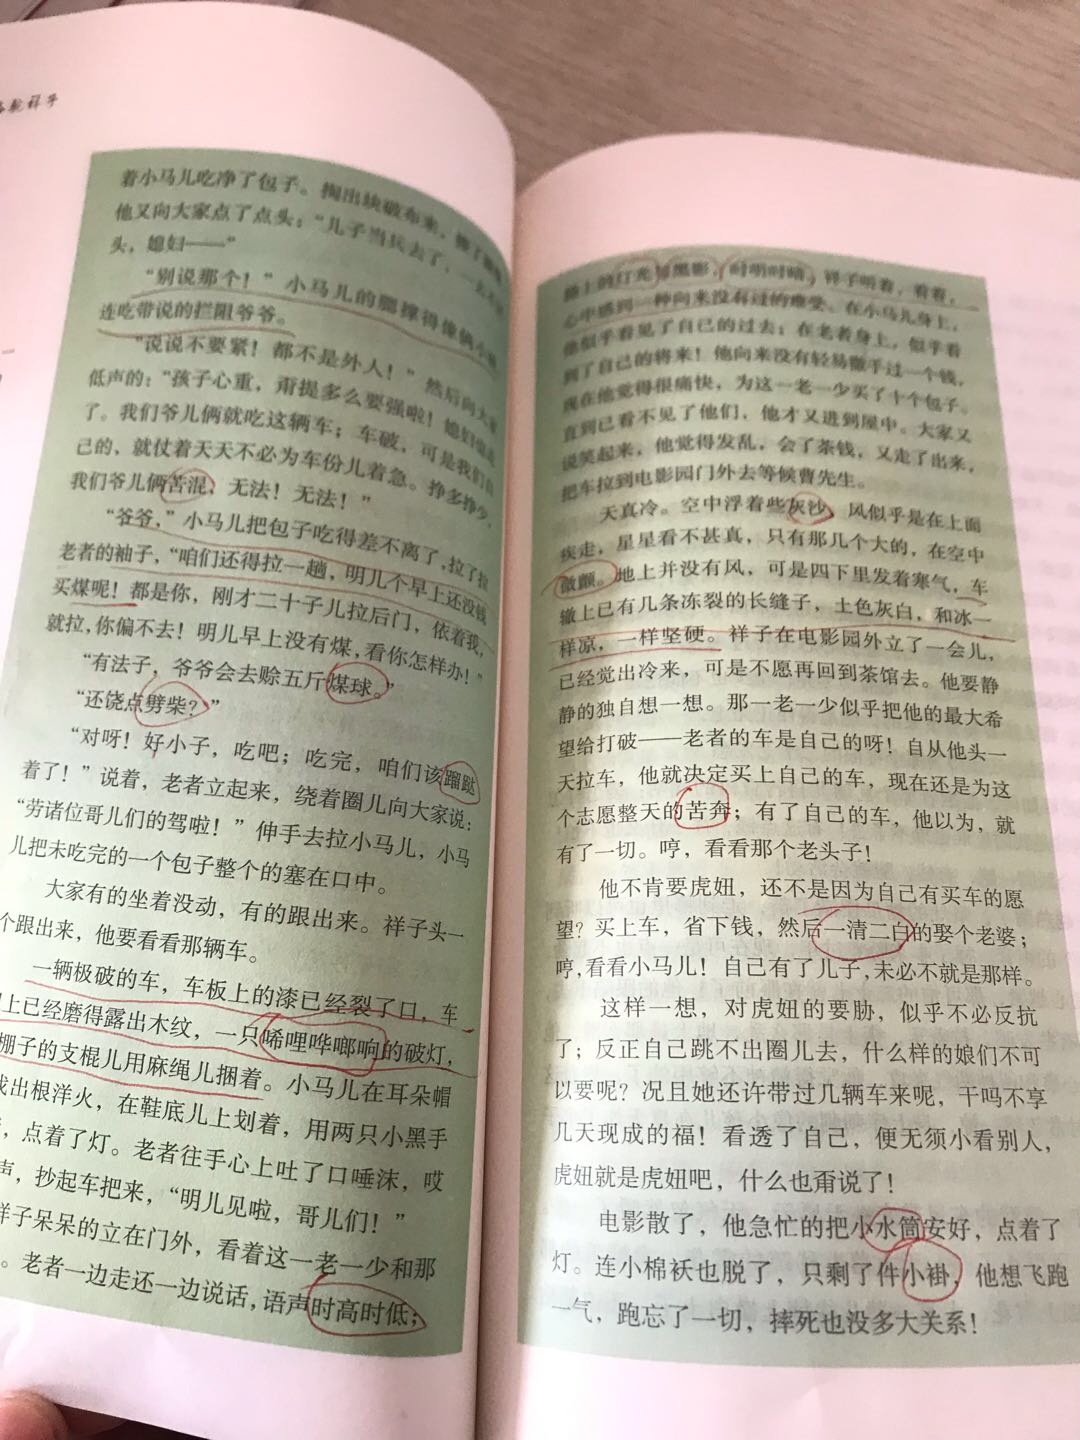 骆驼祥子
着小马儿吃净了包子。掏出块破布来，擦了
他又向大家点了点头：“儿子当兵去了，一去不
头，媳妇——”
“别说那个！”小马儿的腮撑得像俩小
连吃带说的拦阻爷爷。
“说说不要紧！都不是外人！”然后向大家
低声的：“孩子心重，甭提多么要强啦！媳妇也走
了。我们爷儿俩就吃这辆车；车破，可是我们自
己的，就仗着天天不必为车份儿着急。挣多挣少，
我们爷儿俩苦混，无法！无法！”
“爷爷，”小马儿把包子吃得差不离了，拉了拉
老者的袖子，“咱们还得拉一趟，明儿个早上还没钱
买煤呢！都是你，刚才二十子儿拉后门，依着我，
就拉，你偏不去！明儿早上没有煤，看你怎样办！”
“有法子，爷爷会去赊五斤煤球。”
“还饶点劈柴？”
“对呀！好小子，吃吧；吃完，咱们该蹓跶
着了！”说着，老者立起来，绕着圈儿向大家说：
“劳诸位哥儿们的驾啦！”伸手去拉小马儿，小马
儿把未吃完的一个包子整个的塞在口中。
大家有的坐着没动，有的跟出来。祥子头一
个跟出来，他要看看那辆车。
一辆极破的车，车板上的漆已经裂了口，车
上已经磨得露出木纹，一只唏哩哗啷响的破灯，
棚子的支棍儿用麻绳儿捆着。小马儿在耳朵帽
找出根洋火，在鞋底儿上划着，用两只小黑手
，点着了灯。老者往手心上吐了口唾沫，哎
声，抄起车把来，“明儿见啦，哥儿们！”
祥子呆呆的立在门外，看着这一老一少和那
。老者一边走还一边说话，语声时高时低；
路上的灯光与黑影，时明时暗。祥子听着，看着，
心中感到一种向来没有过的难受。在小马儿身上，
他似乎看见了自己的过去；在老者身上，似乎看
到了自己的将来！他向来没有轻易撒手过一个钱，
现在他觉得很痛快，为这一老一少买了十个包子。
直到已看不见了他们，他才又进到屋中。大家又
说笑起来，他觉得发乱，会了茶钱，又走了出来，
把车拉到电影园门外去等候曹先生。
天真冷。空中浮着些灰沙，风似乎是在上面
疾走，星星看不甚真，只有那几个大的，在空中
微颤。地上并没有风，可是四下里发着寒气，车
辙上已有几条冻裂的长缝子，土色灰白，和冰一
样凉，一样坚硬。祥子在电影园外立了一会儿，
已经觉出冷来，可是不愿再回到茶馆去。他要静
静的独自想一想。那一老一少似乎把他的最大希
望给打破——老者的车是自己的呀！自从他头一
天拉车，他就决定买上自己的车，现在还是为这
个志愿整天的苦奔；有了自己的车，他以为，就
有了一切。哼，看看那个老头子！
他不肯要虎妞，还不是因为自己有买车的愿
望？买上车，省下钱，然后一清二白的娶个老婆；
哼，看看小马儿！自己有了儿子，未必不就是那样。
这样一想，对虎妞的要胁，似乎不必反抗
了；反正自己跳不出圈儿去，什么样的娘们不可
以要呢？况且她还许带过几辆车来呢，干吗不享
几天现成的福！看透了自己，便无须小看别人，
虎妞就是虎妞吧，什么也甭说了！
电影散了，他急忙的把小水筒安好，点着了
灯。连小棉袄也脱了，只剩了件小褂，他想飞跑
一气，跑忘了一切，摔死也没多大关系！